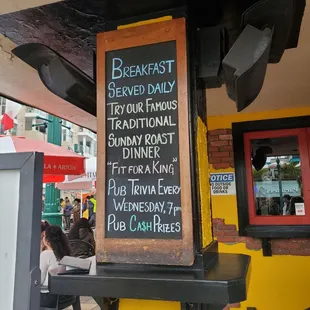 Breakfast
Served Daily
Try our Famous
Traditional
Sunday Roast
Dinner
"Fit for a King"
Pub Trivia Every
Wednesday, 7pm
Pub Cash Prizes
NO
OUTSIDE
FOOD OR
DRINKS